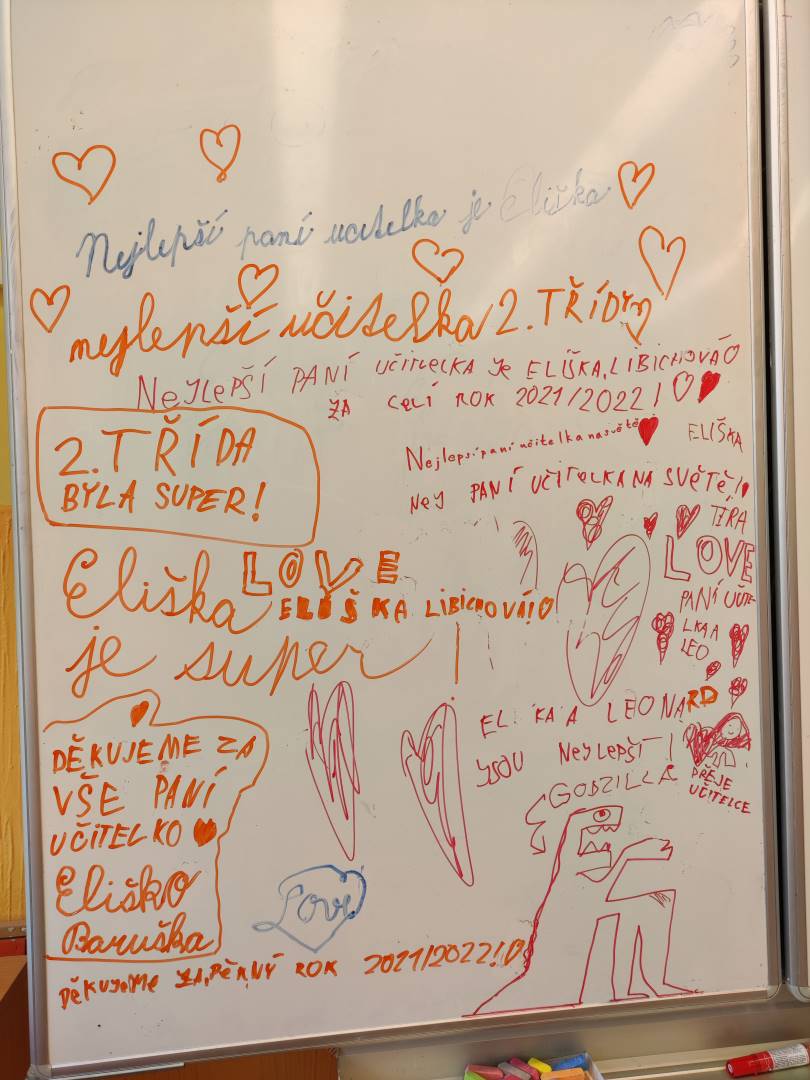 Nejlepší paní ucitelka je Eliška
nejlepší učitelka 2. TŘÍDY
NEJLEPŠÍ PANÍ UČITELKA JE ELIŠKA LIBICHOVÁ
ZA CELÍ ROK 2021/2022!
2. TŘÍDA
BYLA SUPER!
Nejlepsí paní učitelka na světě
ELIŠKA
NEJ PANÍ UČITELKA NA SVĚTĚ!
LOVE
Eliška
ELIŠKA LIBICHOVÁ!
je super!
LOVE
PANÍ UČITE-
LKA A
LEO
ELI KA A LEONARD
JSOU NEJLEPŠÍ!
DĚKUJEME ZA
VŠE PANÍ
UČITELKO
Eliško
Baruška
GODZILLA
PŘEJE
UČITELCE
Love
DĚKUJEME ZA PĚKNÝ ROK 2021/2022!